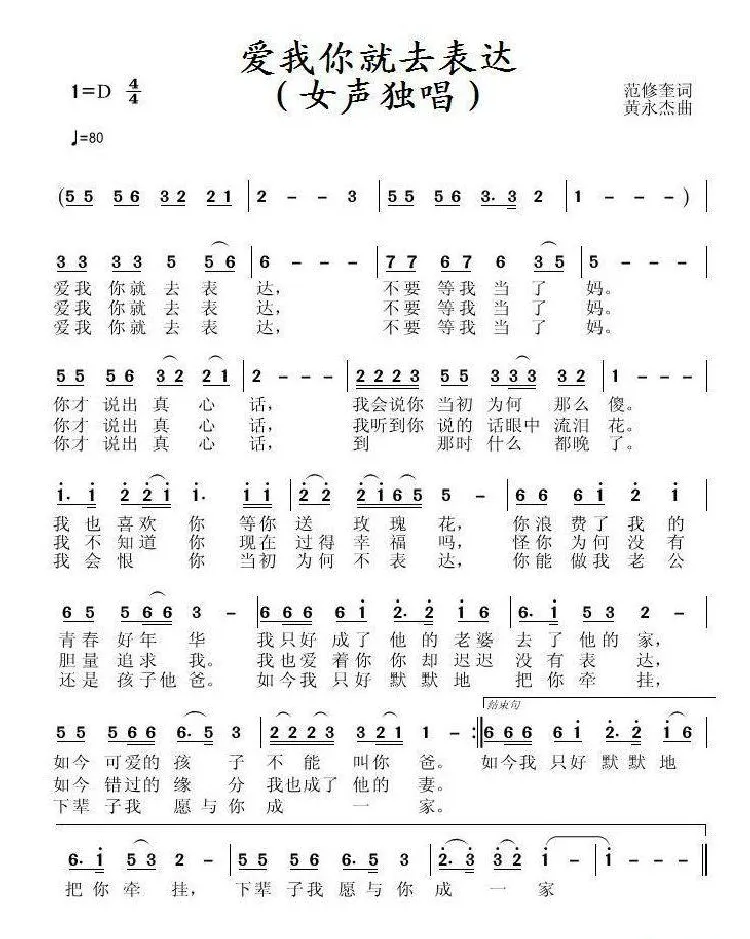 爱我你就去表达
（女声独唱）
1=D 4/4
范修奎词
黄永杰曲
♩=80
(5 5 5 6 3 2 2 1 | 2 - - 3 | 5 5 5 6 3· 3 2 | 1 - - - )
3 3 3 3 5 5 6 | 6 - - - | 7 7 6 7 6 3 5 | 5 - - - |
爱我 你就 去 表 达， 不要 等我 当 了 妈。
爱我 你就 去 表 达， 不要 等我 当 了 妈。
爱我 你就 去 表 达， 不要 等我 当 了 妈。
5 5 5 6 3 2 2 1 | 2 - - - | 2 2 2 3 5 5 3 3 3 3 2 | 1 - - - |
你才 说出 真 心 话， 我会说你 当初 为何 那么 傻。
你才 说出 真 心 话， 我听到你 说的 话眼中 流泪 花。
你才 说出 真 心 话， 到 那时 什么 都晚 了。
1̇· 1̇ 2̇ 2̇ 1̇ 1̇ | 2̇ 2̇ 2̇ 1̇ 6 5 5 - | 6 6 6 1̇ 2̇ |
我 也 喜欢 你 等你 送 玫瑰 花， 你浪 费了 我 的
我 不 知道 你 现在 过得 幸福 吗， 怪你 为何 没 有
我 会 恨 你 当初 为何 不 表 达， 你能 做我 老 公
6 5 5 6 6 3 - | 6 6 6 6 1̇ 2̇· 2̇ 1̇ 6 | 6· 1̇ 5 3 2 - |
青春 好年 华 我只好 成了 他 的 老婆 去 了 他的 家，
胆量 追求 我。 我也爱 着你 你 却 迟迟 没 有 表 达，
还是 孩子他 爸。 如今我 只好 默 默 地 把 你 牵 挂，
结束句
5 5 5 6 6 6· 5 3 | 2 2 2 3 3 2 1 1 - :‖ 6 6 6 6 1̇ 2̇· 2̇ 1̇ 6 |
如今 可爱的 孩 子 不 能 叫你 爸。 如今我 只好 默 默 地
如今 错过的 缘 分 我也成了 他的 妻。
下辈 子我 愿与你 成 一 家。
6· 1̇ 5 3 2 - | 5 5 5 6 6 6· 5 3 | 2̇· 3̇ 3̇ 2̇ 1̇ - | 1̇ - - - ‖
把 你 牵 挂， 下辈 子我 愿与你 成 一 家